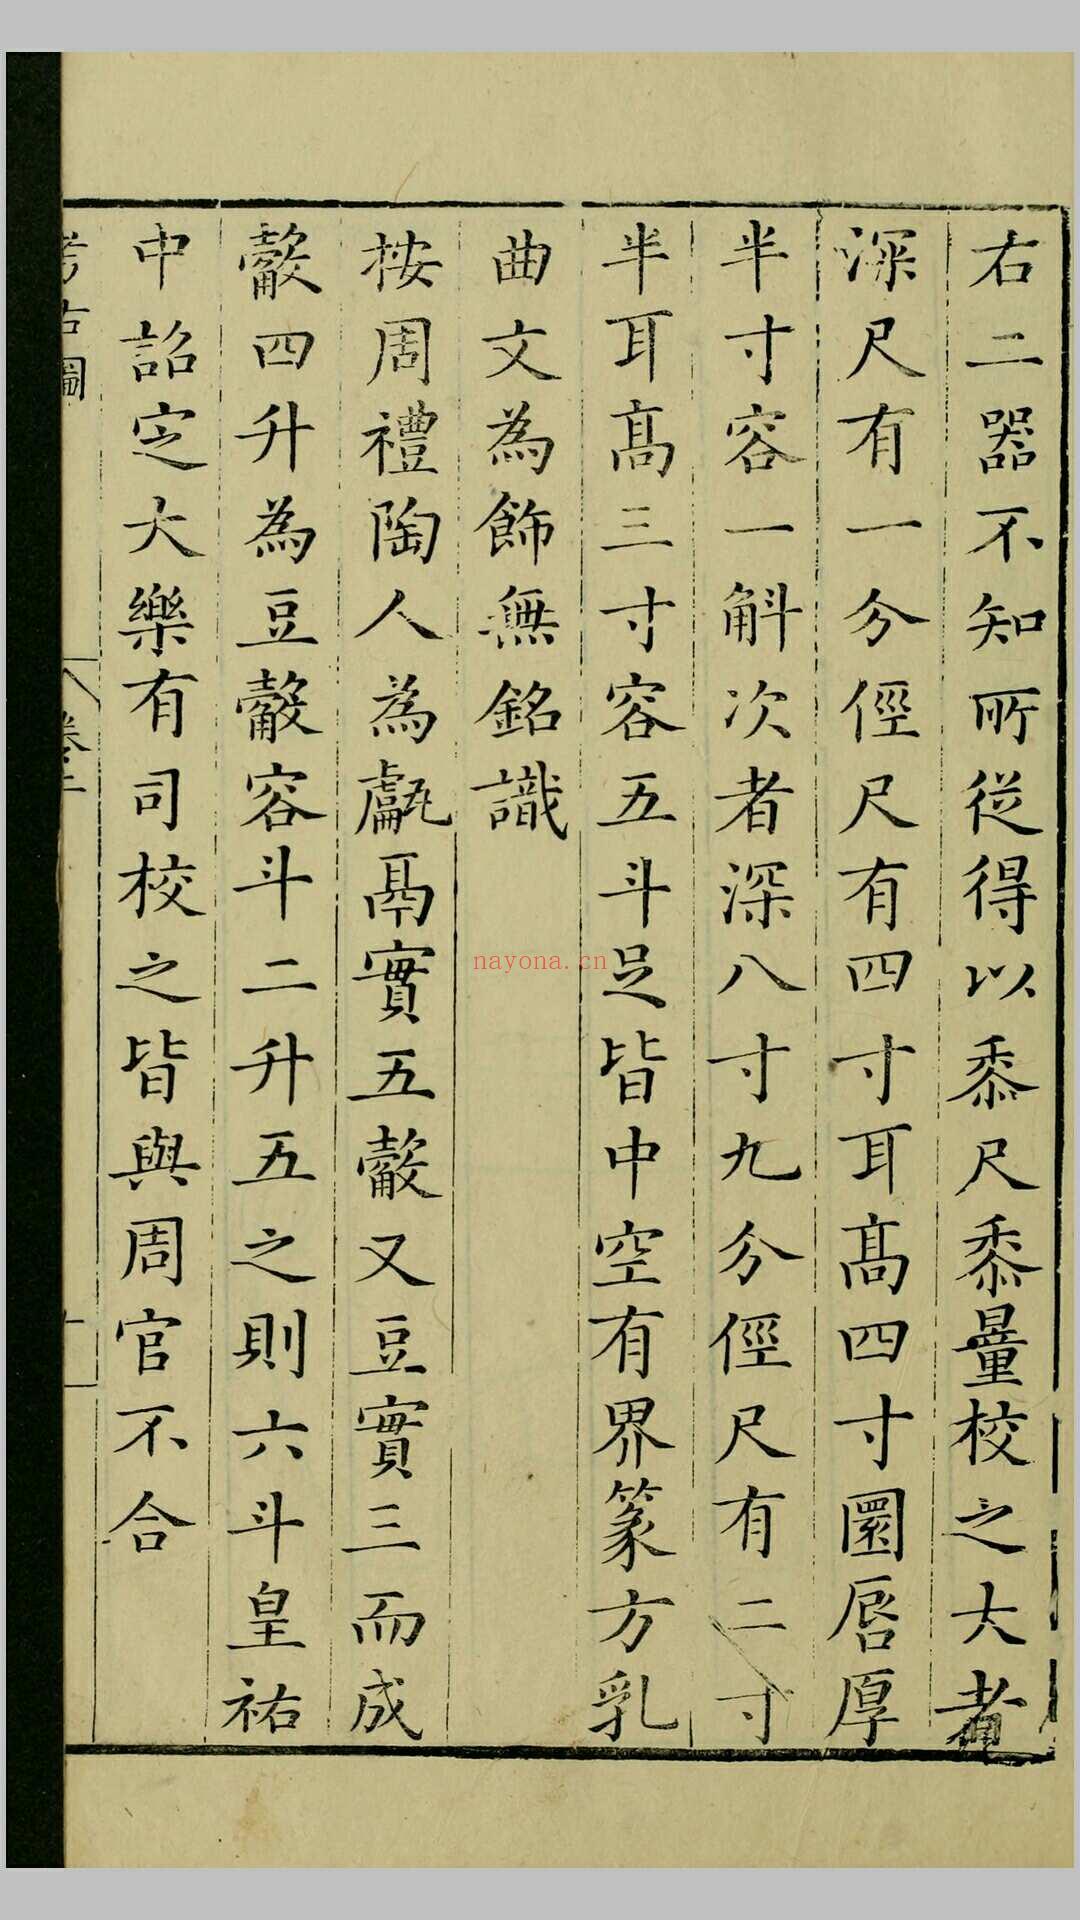 右二器不知所從得以黍尺黍量校之大者
深尺有一分徑尺有四寸耳高四寸圜唇厚
半寸容一斛次者深八寸九分徑尺有二寸
半耳高三寸容五斗足皆中空有界篆方乳
曲文為飾無銘識
按周禮陶人為甗鬲實五觳又豆實三而成
觳四升為豆觳容斗二升五之則六斗皇祐
中詔定大樂有司校之皆與周官不合
考古圖
卷二
十
nayona.cn